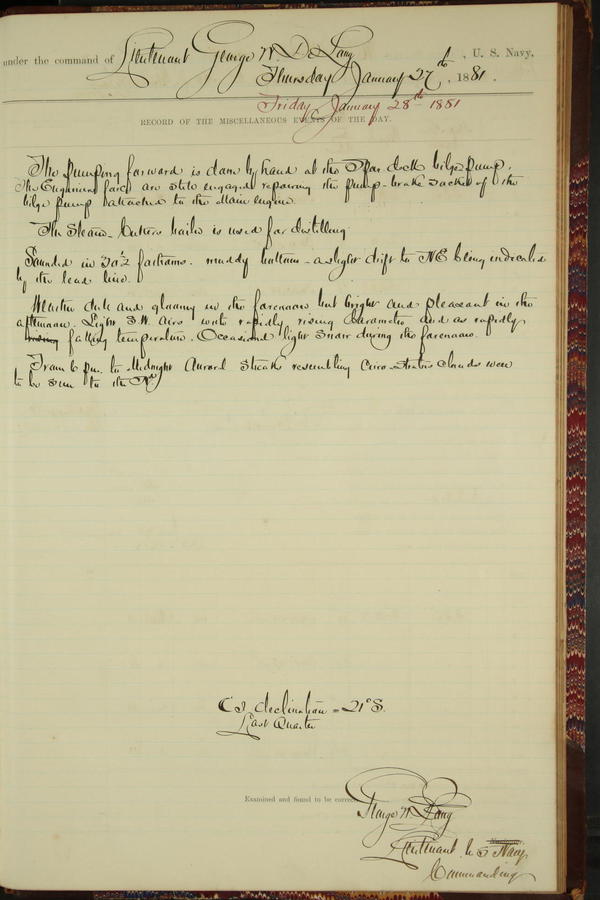 under the command of Lieutenant George W. De Long, U. S. Navy,
Thursday January 27th, 1881.
Friday January 28th 1881
RECORD OF THE MISCELLANEOUS EVENTS OF THE DAY.
The pumping forward is done by hand at the Spar deck bilge pump.
The Engineers force are still engaged repairing the pump-brake of the
bilge pump attached to the Main engine.
The Steam Cutters boiler is used for distilling.
Sounded in 30½ fathoms. muddy bottom - a slight drift to NE being indicated
by the lead line.
Weather dull and gloomy in the forenoon but bright and pleasant in the
afternoon. Light S.W. airs with rapidly rising barometer and as rapidly
rising falling temperature. Occasional light snow during the forenoon.
From 6 pm. to Midnight Auroral Streaks resembling Cirro-Stratus clouds were
to be seen to the Nd
☾'s declination = 21° S.
Last Quarter
Examined and found to be correct.
George W. De Long
Lieutenant U S Navy
Commanding